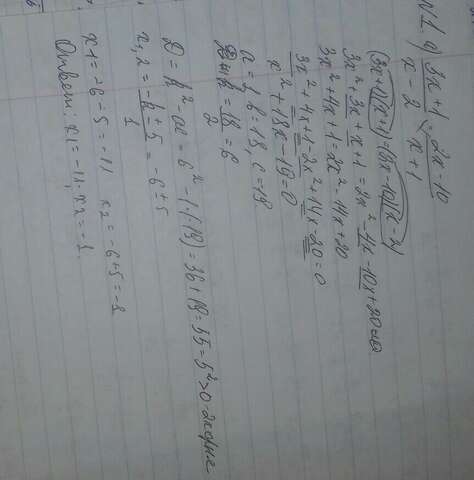 N1. а) 3x+1 / x-2 = 2x-10 / x+1
(3x+1)(x+1)=(2x-10)(x-2)
3x²+3x+x+1=2x²-4x-10x+20
3x²+4x+1=2x²-14x+20
3x²+4x+1-2x²+14x-20=0
x²+18x-19=0
a=1, b=18, c=-19
k = 18/2 = 6
D=k²-ac=6²-1·(-19)=36+19=55=5²>0-2корня
x1,2 = -k±5 / 1 = -6±5
x1=-6-5=-11 x2=-6+5=-1
Ответ: x1=-11; x2=-1.